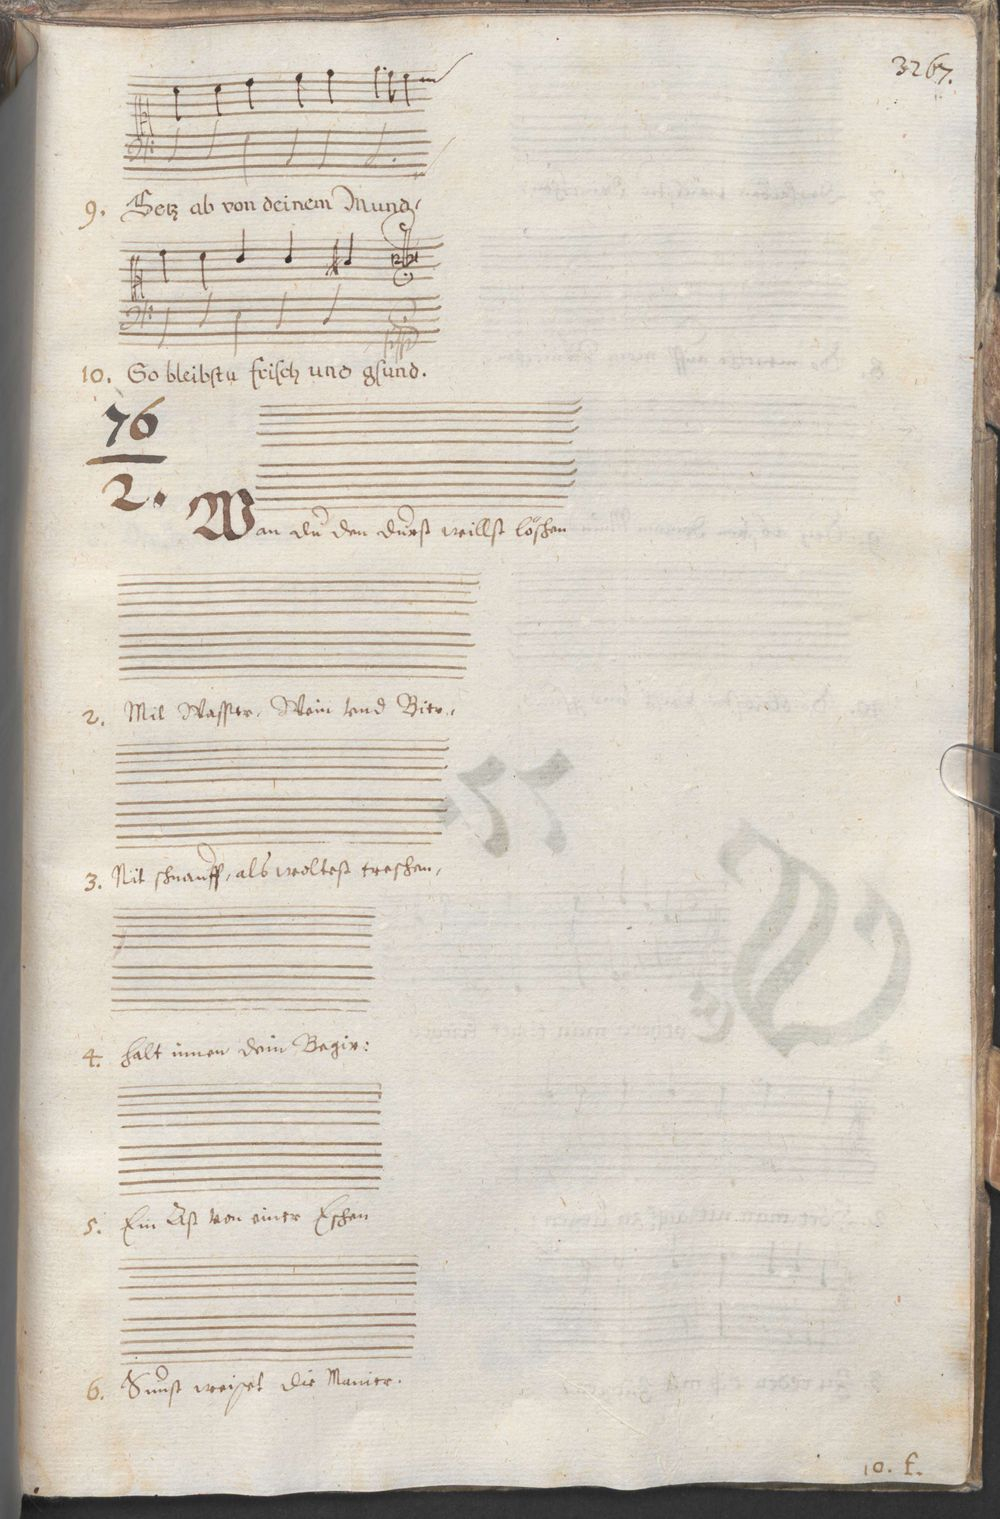 3267.
9. Setz ab von deinem Mund,
10. So bleibstu frisch und gsund.
76
2.
Wan du den durst willst löschen
2. Mit Wasser, Wein vnd Bier,
3. Nit schnauff, als woltest treschen,
4. halt innen dein Begir:
5. Ein Ast von einer Eschen
6. Sunst weiset die Manier.
10. f.